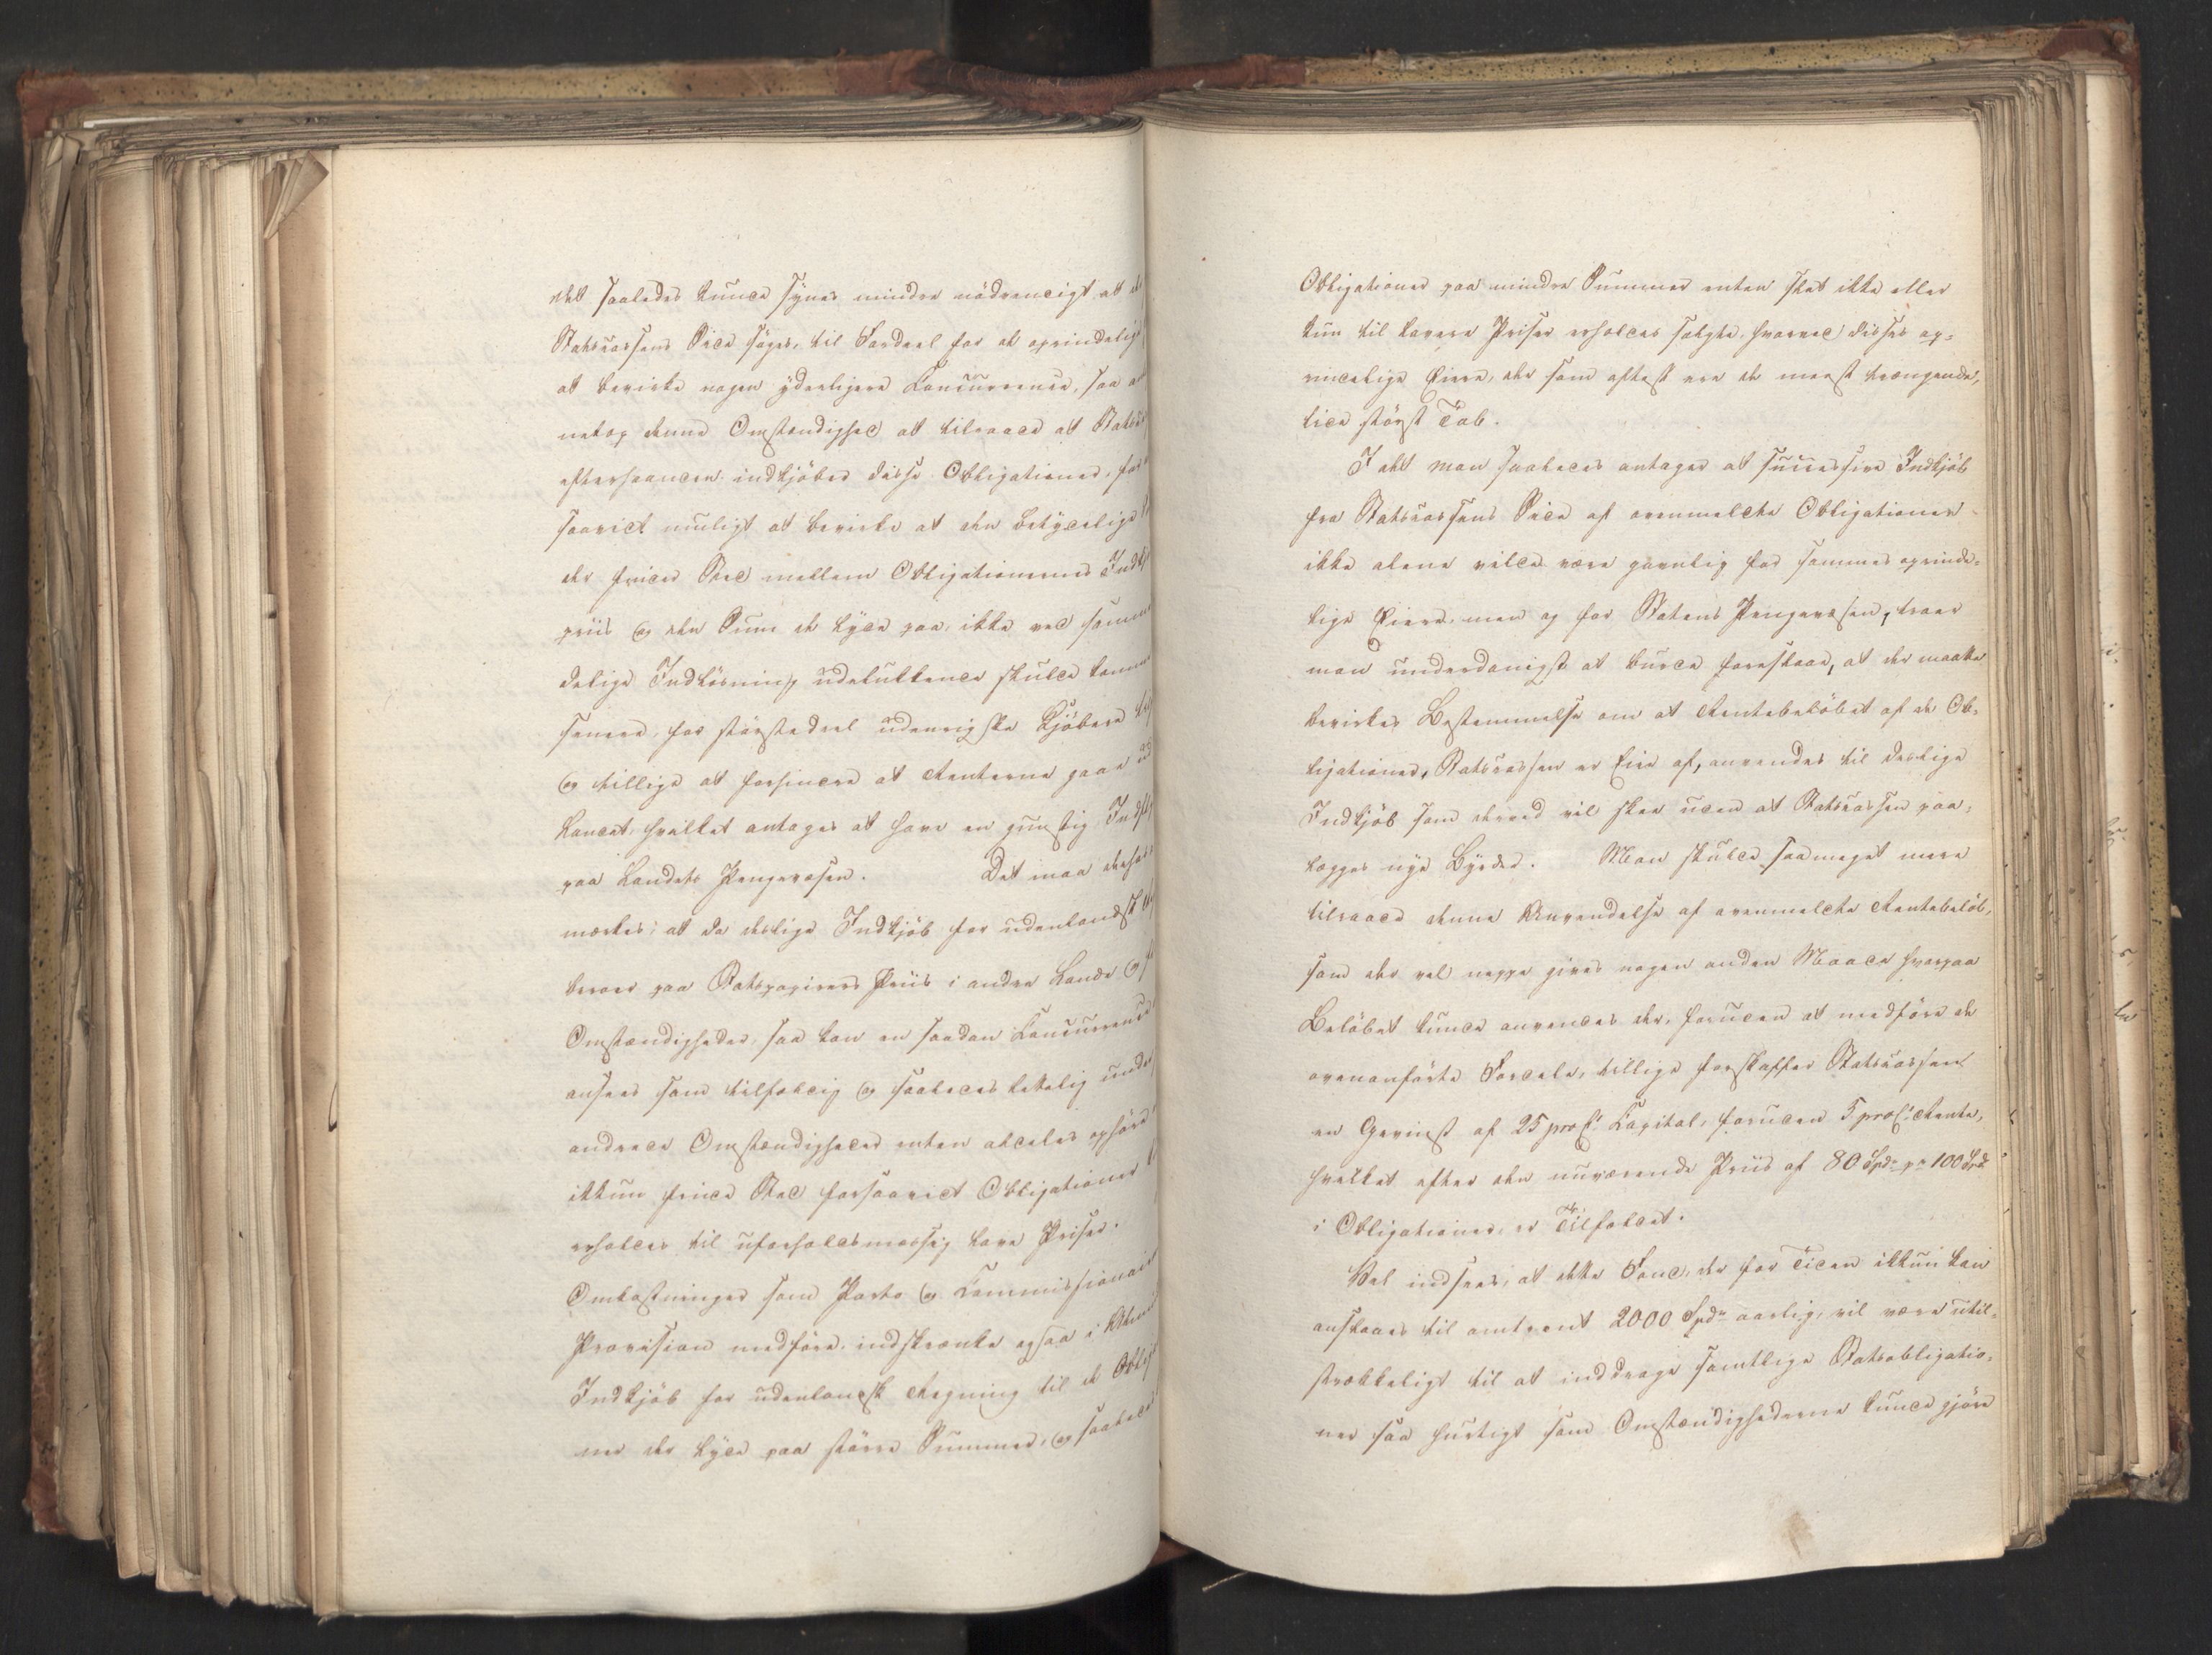 det saaledes kunde synes mindre nödvendigt at
Statscassens Side söges, til Fordeel for de oprindelige
at bevirke nogen yderligere Concurrence, saa
netop denne Omstændighed at tilraade at
efterhaanden indkjöber disse Obligationer, for
saavidt muligt at bevirke at den betydelige
der finder Sted mellem Obligationernes
priis og den Sum de lyde paa, ikke ved
delige Indlösning udelukkende skulde
senere, for störstedeel udenrigske Kjöbere
og tillige at forhindre at Renterne gaae ud
Landet, hvilket antages at have en gunstig
paa Landets Pengevæsen. Det maa
mærkes, at da deslige Indkjöb for udenlandsk
beroer paa Statspapirers Priis i andre Lande og
Omstændigheder, saa kan en saadan Concurrence
ansees som tilfældig og saaledes lettelig under
andrede Omstændigheder enten aldeles ophöre
ikkun finde Sted forsaavidt Obligationer
erholdes til uforholdsmæssig lave Priser.
Omkostninger som Porto og Commissionair
Provision medföre, indskrænke ogsaa i
Indkjöb for udenlandsk Regning til de
ner der lyde paa större Summer, og
Obligationer paa mindre Summer enten slet ikke eller
kun til lavere Priser erholdes solgte, hvorved disses op-
rindelige Eiere, der som oftest ere de meest trængende,
lide störst Tab.
I det man saaledes antager at successive Indkjöb
fra Statscassens Side af ovenmeldte Obligationer
ikke alene vilde være gavnlig for sammes oprinde-
lige Eiere, men og for Statens Pengevæsen, troer
man underdanigst at burde foreslaae, at der maatte
bevirkes Bestemmelse om at Rentebelöbet af de Ob-
ligationer, Statscassen er Eier af, anvendes til deslige
Indkjöb som derved vil skee uden at Statscassen paa-
lægges nye Byrder. Man skulde saameget mere
tilraade denne Anvendelse af ovenmeldte Rentebelöb,
som der vel neppe gives nogen anden Maade hvorpaa
Belöbet kunde anvendes der, foruden at medföre de
ovenanförte Fordele, tillige forskaffer Statscassen
en Gevinst af 25 proCt Capital, foruden 5 proCt Rente,
hvilket efter den nuværende Priis af 80 Spdr pr 100 Spdr
i Obligationer, er Tilfældet.
Vel indsees, at dette Fond, der for Tiden ikkun kan
anslaaes til omtrent 2000 Spdr aarlig, vil være util-
strækkeligt til at inddrage samtlige Statsobligatio-
ner saa hurtigt som Omstændighederne kunde gjöre